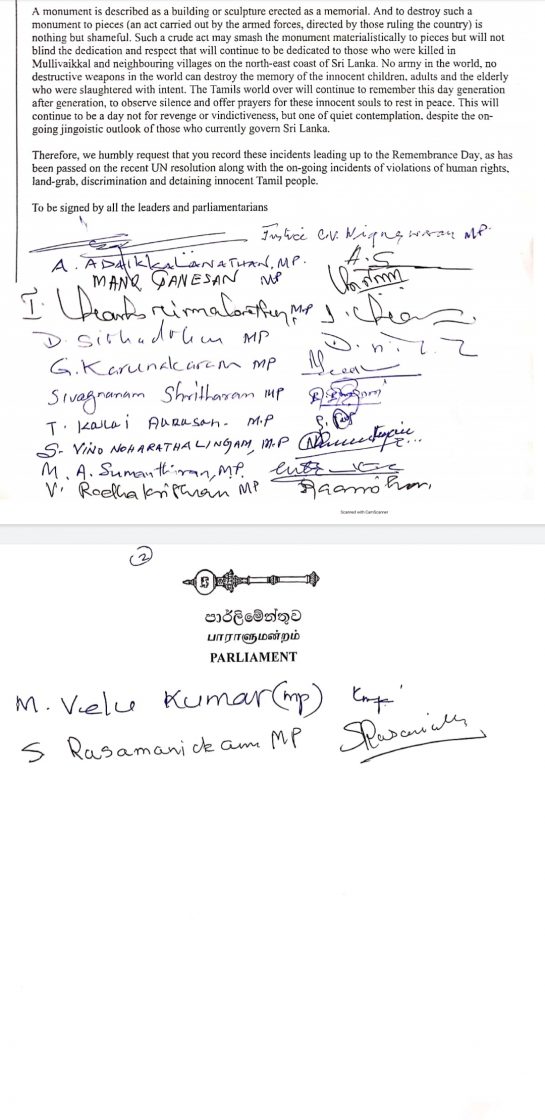 A monument is described as a building or sculpture erected as a memorial. And to destroy such a
monument to pieces (an act carried out by the armed forces, directed by those ruling the country) is
nothing but shameful. Such a crude act may smash the monument materialistically to pieces but will not
blind the dedication and respect that will continue to be dedicated to those who were killed in
Mullivaikkal and neighbouring villages on the north-east coast of Sri Lanka. No army in the world, no
destructive weapons in the world can destroy the memory of the innocent children, adults and the elderly
who were slaughtered with intent. The Tamils world over will continue to remember this day generation
after generation, to observe silence and offer prayers for these innocent souls to rest in peace. This will
continue to be a day not for revenge or vindictiveness, but one of quiet contemplation, despite the on-
going jingoistic outlook of those who currently govern Sri Lanka.
Therefore, we humbly request that you record these incidents leading up to the Remembrance Day, as has
been passed on the recent UN resolution along with the on-going incidents of violations of human rights,
land-grab, discrimination and detaining innocent Tamil people.
To be signed by all the leaders and parliamentarians
Justice C.V. MP.
A. ADAIKKALANATHAN, MP. A.S
MANO GANESAN MP
I. MP
D. MP
G. Karunakaram MP
Sivagnanam Shritharan MP
T. Kalai Aurasan. M.P
S. VINO NOHARATHALINGAM, M.P
M. A. Sumanthiran, MP.
V. MP
Scanned with CamScanner
2
පාර්ලිමේන්තුව
பாராளுமன்றம்
PARLIAMENT
M. Velu Kumar (mp)
S Rasamanickam MP